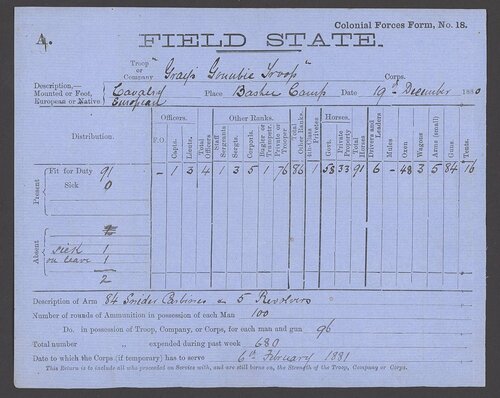 Colonial Forces Form, No. 18.
A.
FIELD STATE.
Troop or Company "Gray's Gonubie Troop" Corps.
Description,—
Mounted or Foot, Cavalry Place Basher Camp Date 19th December 1880
European or Native European
Distribution.
Officers. Other Ranks. Horses.
F.O. Capts. Lieuts. Total Officers Staff Sergeants Sergts. Corporals. Bugler or Trumpeter. Private or Trooper Total Other Ranks. Privates Govt. Private Property Total Horses Drivers and Leaders Mules Oxen Wagons Arms (small) Guns Tents.
Present
Fit for Duty 91 - 1 3 4 1 3 5 1 76 86 1 58 33 91 6 - 48 3 5 84 " 16
Sick 0
Absent
sick 1
on leave 1
2
Description of Arm 84 Snider Carbines 5 Revolvers
Number of rounds of Ammunition in possession of each Man 100
Do. in possession of Troop, Company, or Corps, for each man and gun 96
Total number " expended during past week 680
Date to which the Corps (if temporary) has to serve 6th February 1881
This Return is to include all who proceeded on Service with, and are still borne on, the Strength of the Troop, Company or Corps.